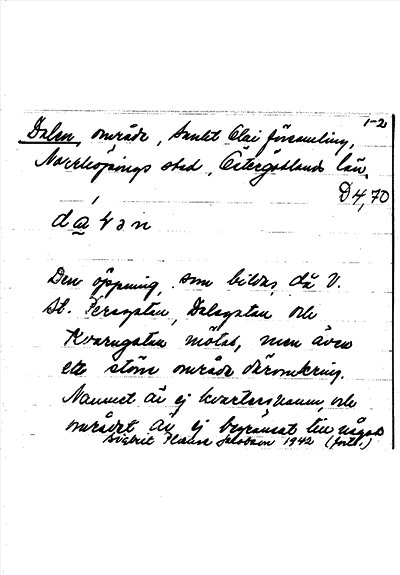 1-2
Dalen, område, Sankt Olai församling,
Norrköpings stad, Östergötlands län.
D4,70
Den öppning, som bildas, då V.
St. Persgatan, Dalsgatan och
Kvarngatan mötas, men även
ett större område däromkring.
Namnet är ej kvartersnamn, och
området är ej begränsat till något
Jakobson 1942 (forts.)